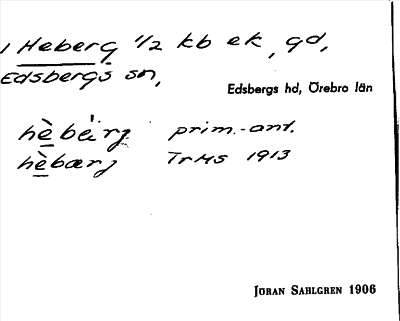 1 Heberg 1/2 kb ek, gd,
Edsbergs sn,
Edsbergs hd, Örebro län
hèbärg prim.-ant.
hèbærj TrHS 1913
JÖRAN SAHLGREN 1906